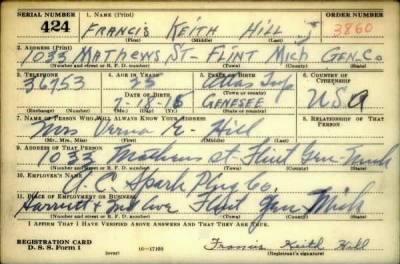 SERIAL NUMBER 1. NAME (Print) ORDER NUMBER
424 FRANCIS KEITH HILL 3860
(First) (Middle) (Last)
2. ADDRESS (Print)
1033 MATHEWS ST- FLINT Mich GEN. Co
(Number and street or R. F. D. number) (Town) (County) (State)
3. TELEPHONE 4. AGE IN YEARS 5. PLACE OF BIRTH 6. COUNTRY OF CITIZENSHIP
36753 Atlas Twp
DATE OF BIRTH (Town or county)
7-18-15 GENESEE USA
(Exchange) (Number) (Mo.) (Day) (Yr.) (State or country)
7. NAME OF PERSON WHO WILL ALWAYS KNOW YOUR ADDRESS 8. RELATIONSHIP OF THAT PERSON
Mrs Verna E. Hill
(Mr., Mrs., Miss) (First) (Middle) (Last)
9. ADDRESS OF THAT PERSON
1033 Mathews st Flint Gen Mich
(Number and street or R. F. D. number) (Town) (County) (State)
10. EMPLOYER'S NAME
A. C. Spark Plug Co.
11. PLACE OF EMPLOYMENT OR BUSINESS
Ave Flint Gen Mich
(Number and street or R. F. D. number) (Town) (County) (State)
I AFFIRM THAT I HAVE VERIFIED ABOVE ANSWERS AND THAT THEY ARE TRUE.
REGISTRATION CARD
D. S. S. Form 1 Francis Keith Hill
(Registrant's signature)